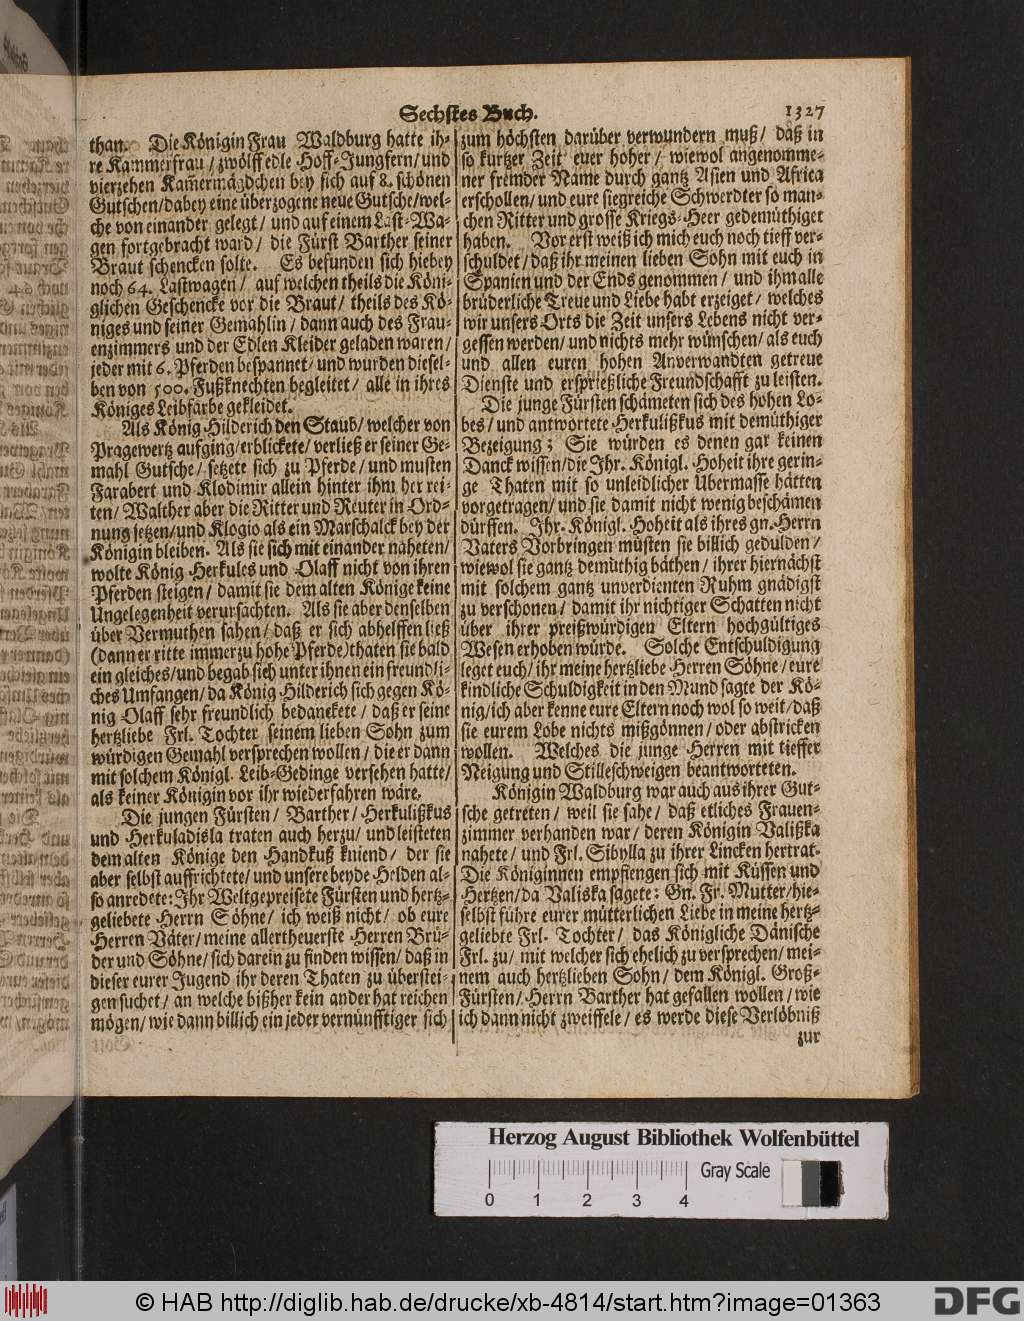 Sechstes Buch.
1327
than. Die Königin Frau Waldburg hatte ih-
re Kammerfrau/ zwölff edle Hoff-Jungfern/ und
vierzehen Kam̃ermägdchen bey sich auf 8. schönen
Gutschen/ dabey eine überzogene neue Gutsche/ wel-
che von einander gelegt/ und auf einem Last-Wa-
gen fortgebracht ward/ die Fürst Barther seiner
Braut schencken solte. Es befunden sich hiebey
noch 64. Lastwagen/ auf welchen theils die Köni-
glichen Geschencke vor die Braut/ theils des Kö-
niges und seiner Gemahlin/ dann auch des Frau-
enzimmers und der Edlen Kleider geladen waren/
jeder mit 6. Pferden bespannet/ und wurden diesel-
ben von 500. Fußknechten begleitet/ alle in ihres
Königes Leibfarbe gekleidet.
Als König Hilderich den Staub/ welcher von
Pragewertz aufging/ erblickete/ verließ er seiner Ge-
mahl Gutsche/ setzete sich zu Pferde/ und musten
Farabert und Klodimir allein hinter ihm her rei-
ten/ Walther aber die Ritter und Reuter in Ord-
nung setzen/ und Klogio als ein Marschalck bey der
Königin bleiben. Als sie sich mit einander naheten/
wolte König Herkules und Olaff nicht von ihren
Pferden steigen/ damit sie dem alten Könige keine
Ungelegenheit verursachten. Als sie aber denselben
über Vermuthen sahen/ daß er sich abhelffen ließ
(dann er ritte immerzu hohe Pferde) thaten sie bald
ein gleiches/ und begab sich unter ihnen ein freundli-
ches Umfangen/ da König Hilderich sich gegen Kö-
nig Olaff sehr freundlich bedanckete/ daß er seine
hertzliebe Frl. Tochter seinem lieben Sohn zum
würdigen Gemahl versprechen wollen/ die er dann
mit solchem Königl. Leib-Gedinge versehen hatte/
als keiner Königin vor ihr wiederfahren wäre.
Die jungen Fürsten/ Barther/ Herkulißkus
und Herkuladisla traten auch herzu/ und leisteten
dem alten Könige den Handkuß kniend/ der sie
aber selbst auffrichtete/ und unsere beyde Helden al-
so anredete: Ihr Weltgepreisete Fürsten und hertz-
geliebete Herrn Söhne/ ich weiß nicht/ ob eure
Herren Väter/ meine allertheuerste Herren Brü-
der und Söhne/ sich darein zu finden wissen/ daß in
dieser eurer Jugend ihr deren Thaten zu überstei-
gen suchet/ an welche bißher kein ander hat reichen
mögen/ wie dann billich ein jeder vernünfftiger sich
zum höchsten darüber verwundern muß/ daß in
so kurtzer Zeit euer hoher/ wiewol angenomme-
ner fremder Name durch gantz Asien und Africa
erschollen/ und eure siegreiche Schwerdter so man-
chen Ritter und grosse Kriegs-Heer gedemüthiget
haben. Vor erst weiß ich mich euch noch tieff ver-
schuldet/ daß ihr meinen lieben Sohn mit euch in
Spanien und der Ends genommen/ und ihm alle
brüderliche Treue und Liebe habt erzeiget/ welches
wir unsers Orts die Zeit unsers Lebens nicht ver-
gessen werden/ und nichts mehr wünschen/ als euch
und allen euren hohen Anverwandten getreue
Dienste und ersprießliche Freundschafft zu leisten.
Die junge Fürsten schämeten sich des hohen Lo-
bes/ und antwortete Herkulißkus mit demüthiger
Bezeigung; Sie würden es denen gar keinen
Danck wissen/ die Ihr. Königl. Hoheit ihre gerin-
ge Thaten mit so unleidlicher Übermasse hätten
vorgetragen/ und sie damit nicht wenig beschämen
dürffen. Ihr. Königl. Hoheit als ihres gn. Herrn
Vaters Vorbringen müsten sie billich gedulden/
wiewol sie gantz demüthig bäthen/ ihrer hiernächst
mit solchem gantz unverdienten Ruhm gnädigst
zu verschonen/ damit ihr nichtiger Schatten nicht
über ihrer preißwürdigen Eltern hochgültiges
Wesen erhoben würde. Solche Entschuldigung
leget euch/ ihr meine hertzliebe Herren Söhne/ eure
kindliche Schuldigkeit in den Mund sagte der Kö-
nig/ ich aber kenne eure Eltern noch wol so weit/ daß
sie eurem Lobe nichts mißgönnen/ oder abstricken
wollen. Welches die junge Herren mit tieffer
Neigung und Stilleschweigen beantworteten.
Königin Waldburg war auch aus ihrer Gut-
sche getreten/ weil sie sahe/ daß etliches Frauen-
zimmer verhanden war/ deren Königin Valißka
nahete/ und Frl. Sibylla zu ihrer Lincken hertrat.
Die Königinnen empfiengen sich mit Küssen und
Hertzen/ da Valiska sagete: Gn. Fr. Mutter/ hie-
selbst führe eurer mütterlichen Liebe in meine hertz-
geliebte Frl. Tochter/ das Königliche Dänische
Frl. zu/ mit welcher sich ehelich zu versprechen/ mei-
nem auch hertzlieben Sohn/ dem Königl. Groß-
Fürsten/ Herrn Barther hat gefallen wollen/ wie
ich dann nicht zweiffele/ es werde diese Verlöbniß
zur
Herzog August Bibliothek Wolfenbüttel
Gray Scale
0 1 2 3 4
© HAB http://diglib.hab.de/drucke/xb-4814/start.htm?image=01363
DFG